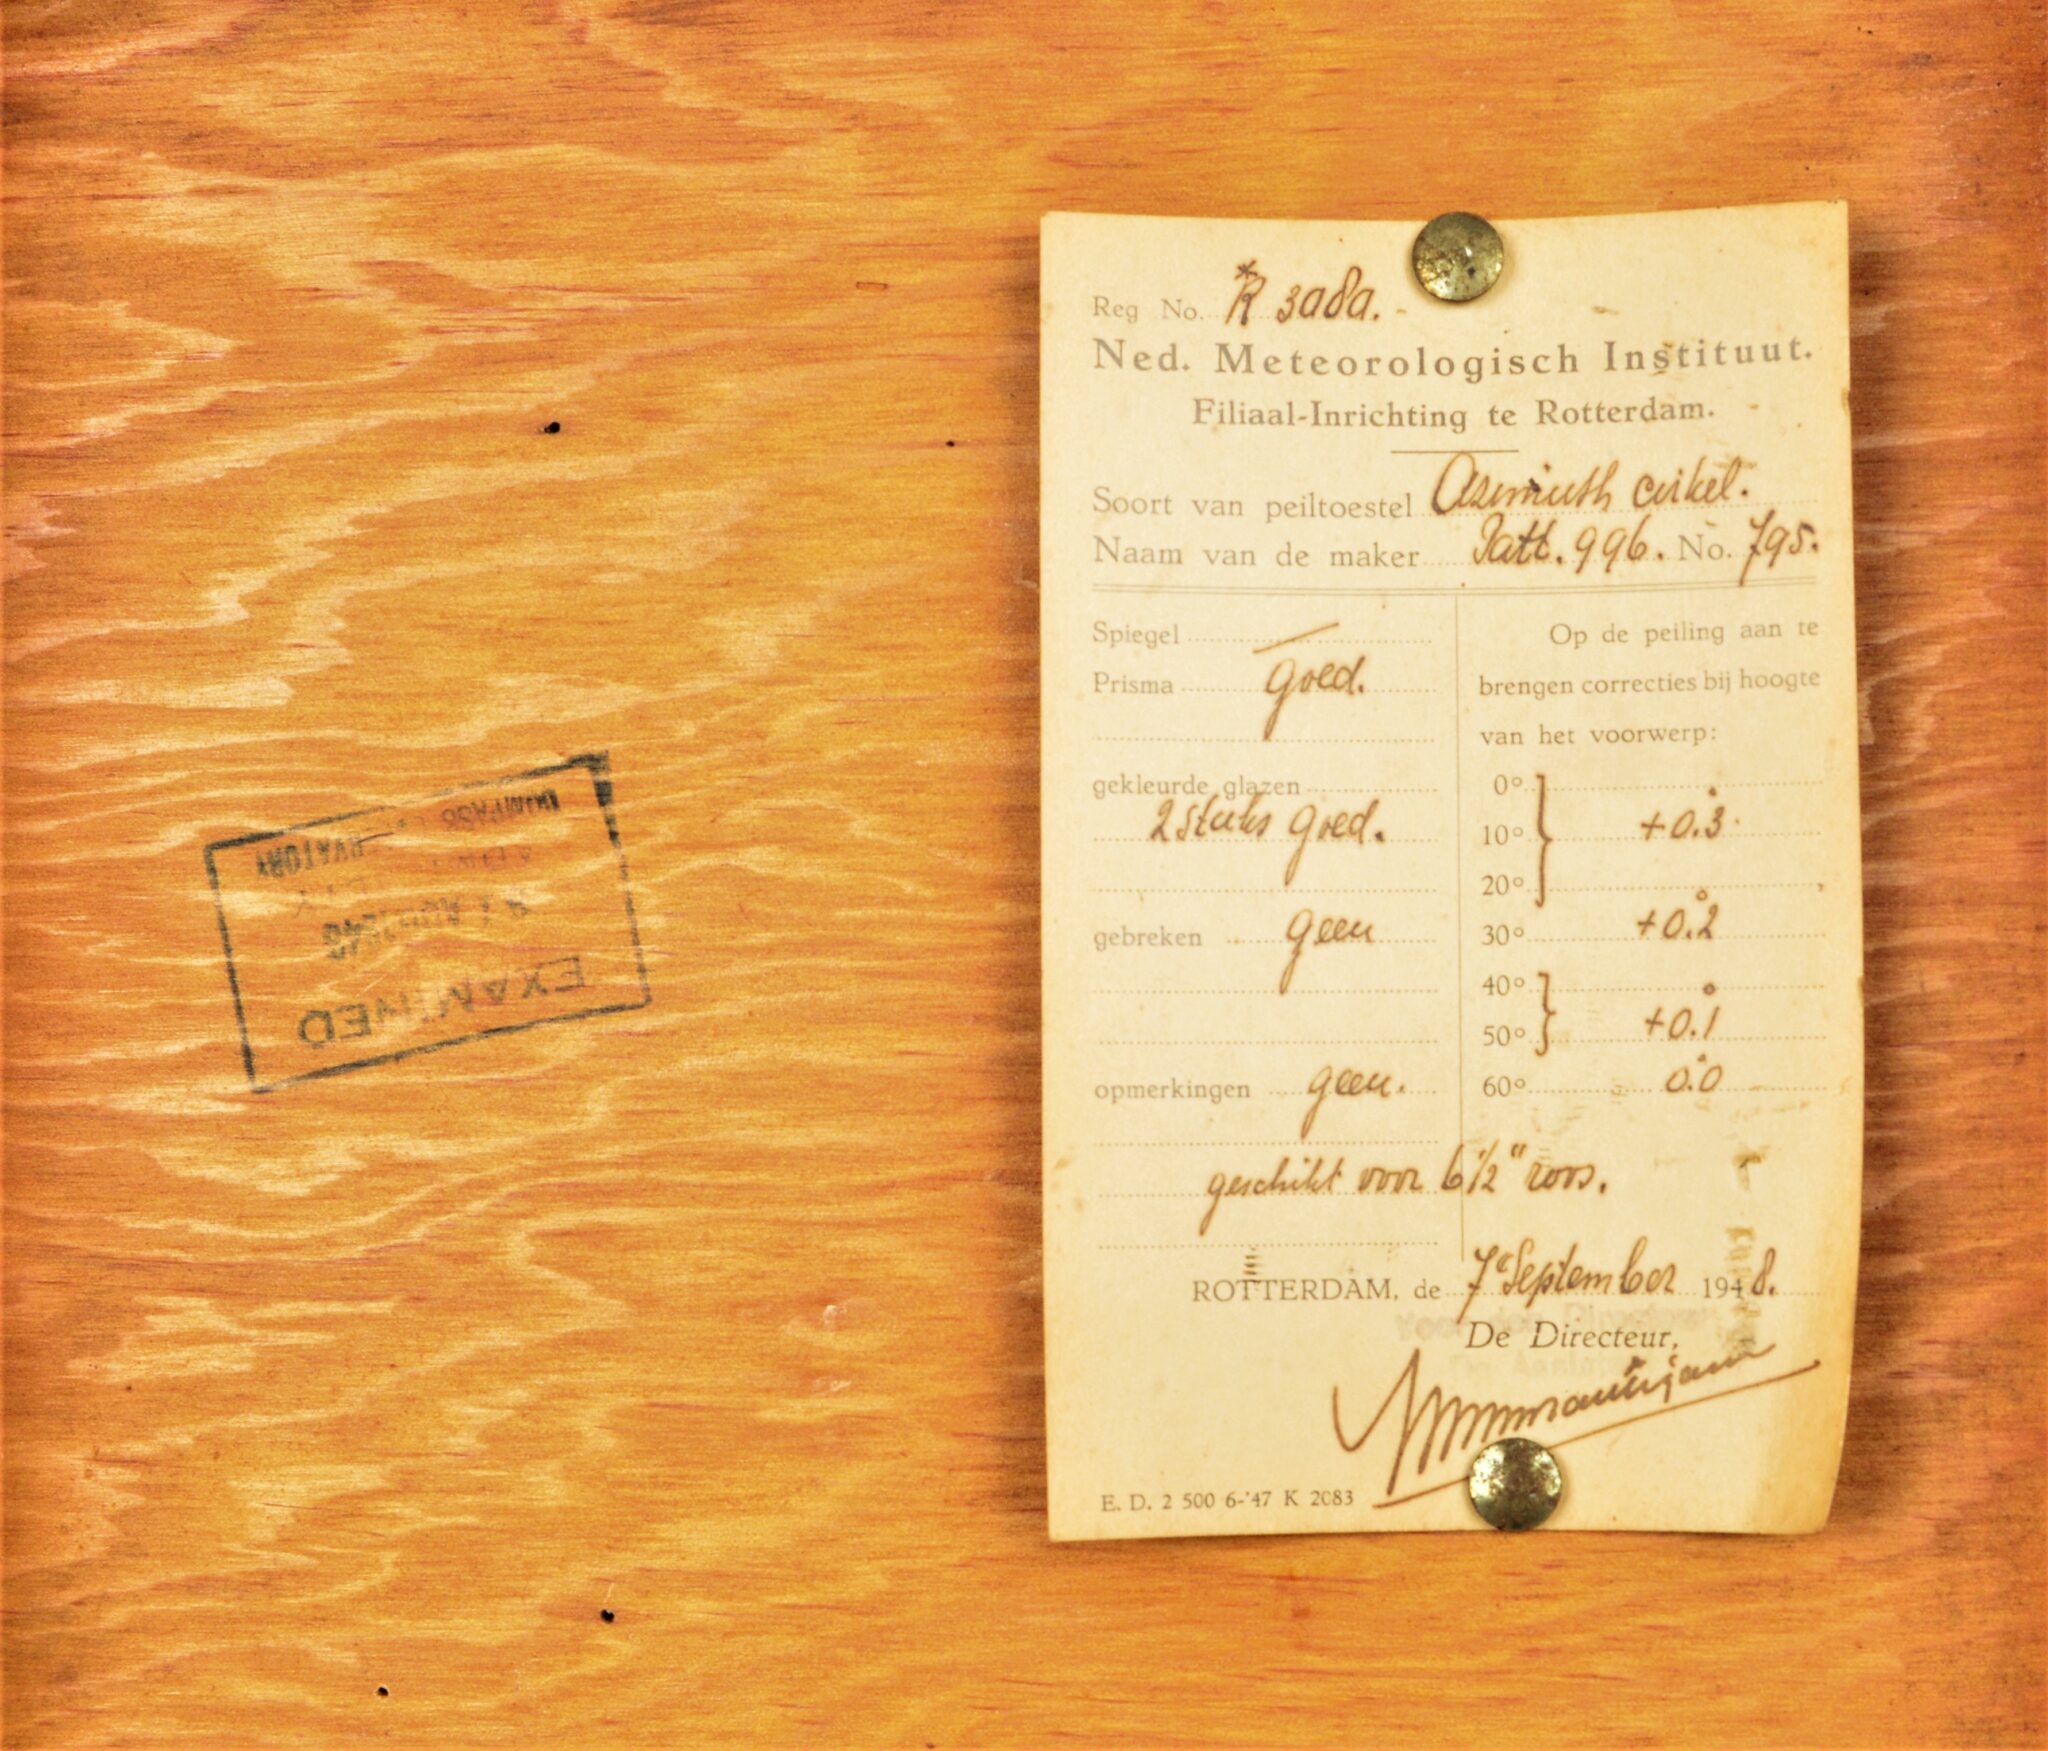 Reg No. R 3a8a.
Ned. Meteorologisch Instituut.
Filiaal-Inrichting te Rotterdam.
Soort van peiltoestel Azimuth cirkel.
Naam van de maker Patt. 996. No. 795.
Spiegel —
Prisma goed.
gekleurde glazen
2 stuks goed.
gebreken geen
opmerkingen geen.
geschikt voor 6 1/2" roos.
Op de peiling aan te
brengen correcties bij hoogte
van het voorwerp:
0°
10° +0.°3
20°
30° +0.°2
40°
50° +0.°1
60° 0.°0
ROTTERDAM, de 7 September 1948.
De Directeur,
E. D. 2 500 6-'47 K 2083
EXAMINED
COMPASS
OBSERVATORY